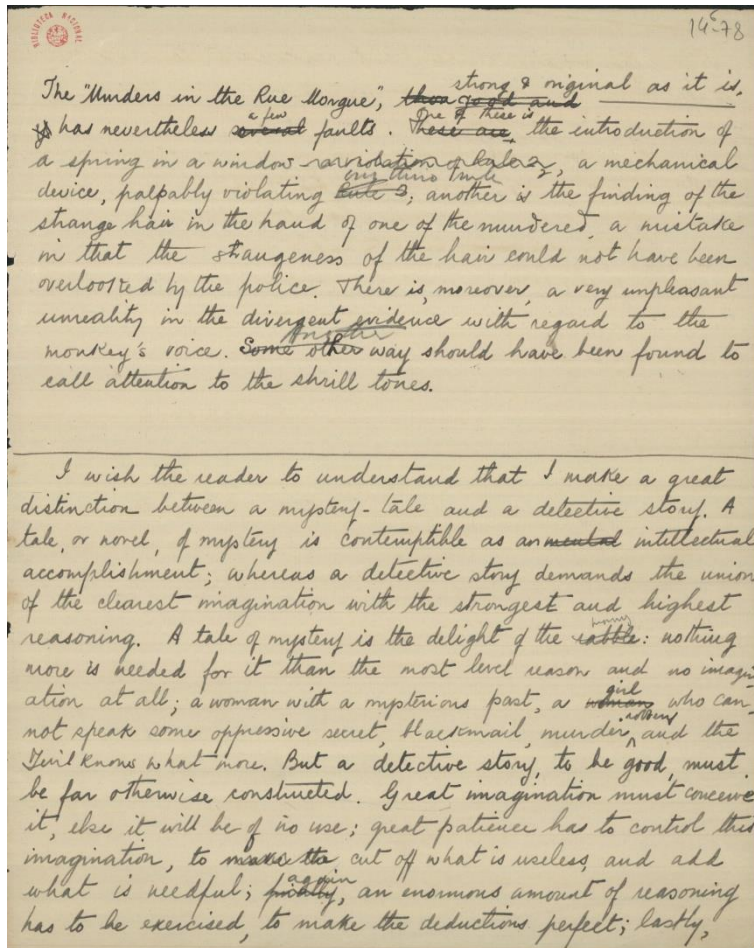 BIBLIOTECA NACIONAL
14C-78
strong & original as it is,
The "Murders in the Rue Morgue", thou good and
a few One of these is
has nevertheless several faults. These are, the introduction of
a spring in a window – a violation of Rule 2, a mechanical
device, palpably violating Rule 3; another is the finding of the
strange hair in the hand of one of the murdered, a mistake
in that the strangeness of the hair could not have been
overlooked by the police. There is, moreover, a very unpleasant
unreality in the divergent evidence with regard to the
Another
monkey's voice. Some other way should have been found to
call attention to the shrill tones.
I wish the reader to understand that I make a great
distinction between a mystery-tale and a detective story. A
tale, or novel, of mystery is contemptible as an mental intellectual
accomplishment; whereas a detective story demands the union
of the clearest imagination with the strongest and highest
reasoning. A tale of mystery is the delight of the rabble: nothing
more is needed for it than the most level reason and no imagin-
ation at all; a woman with a mysterious past, a woman who can-
girl
not speak some oppressive secret, blackmail, murder, and the
robbery
Devil knows what more. But a detective story, to be good, must
be far otherwise constructed. Great imagination must conceive
it, else it will be of no use; great patience has to control this
imagination, to make the cut off what is useless, and add
again
what is needful; finally, an enormous amount of reasoning
has to be exercised, to make the deductions perfect; lastly,